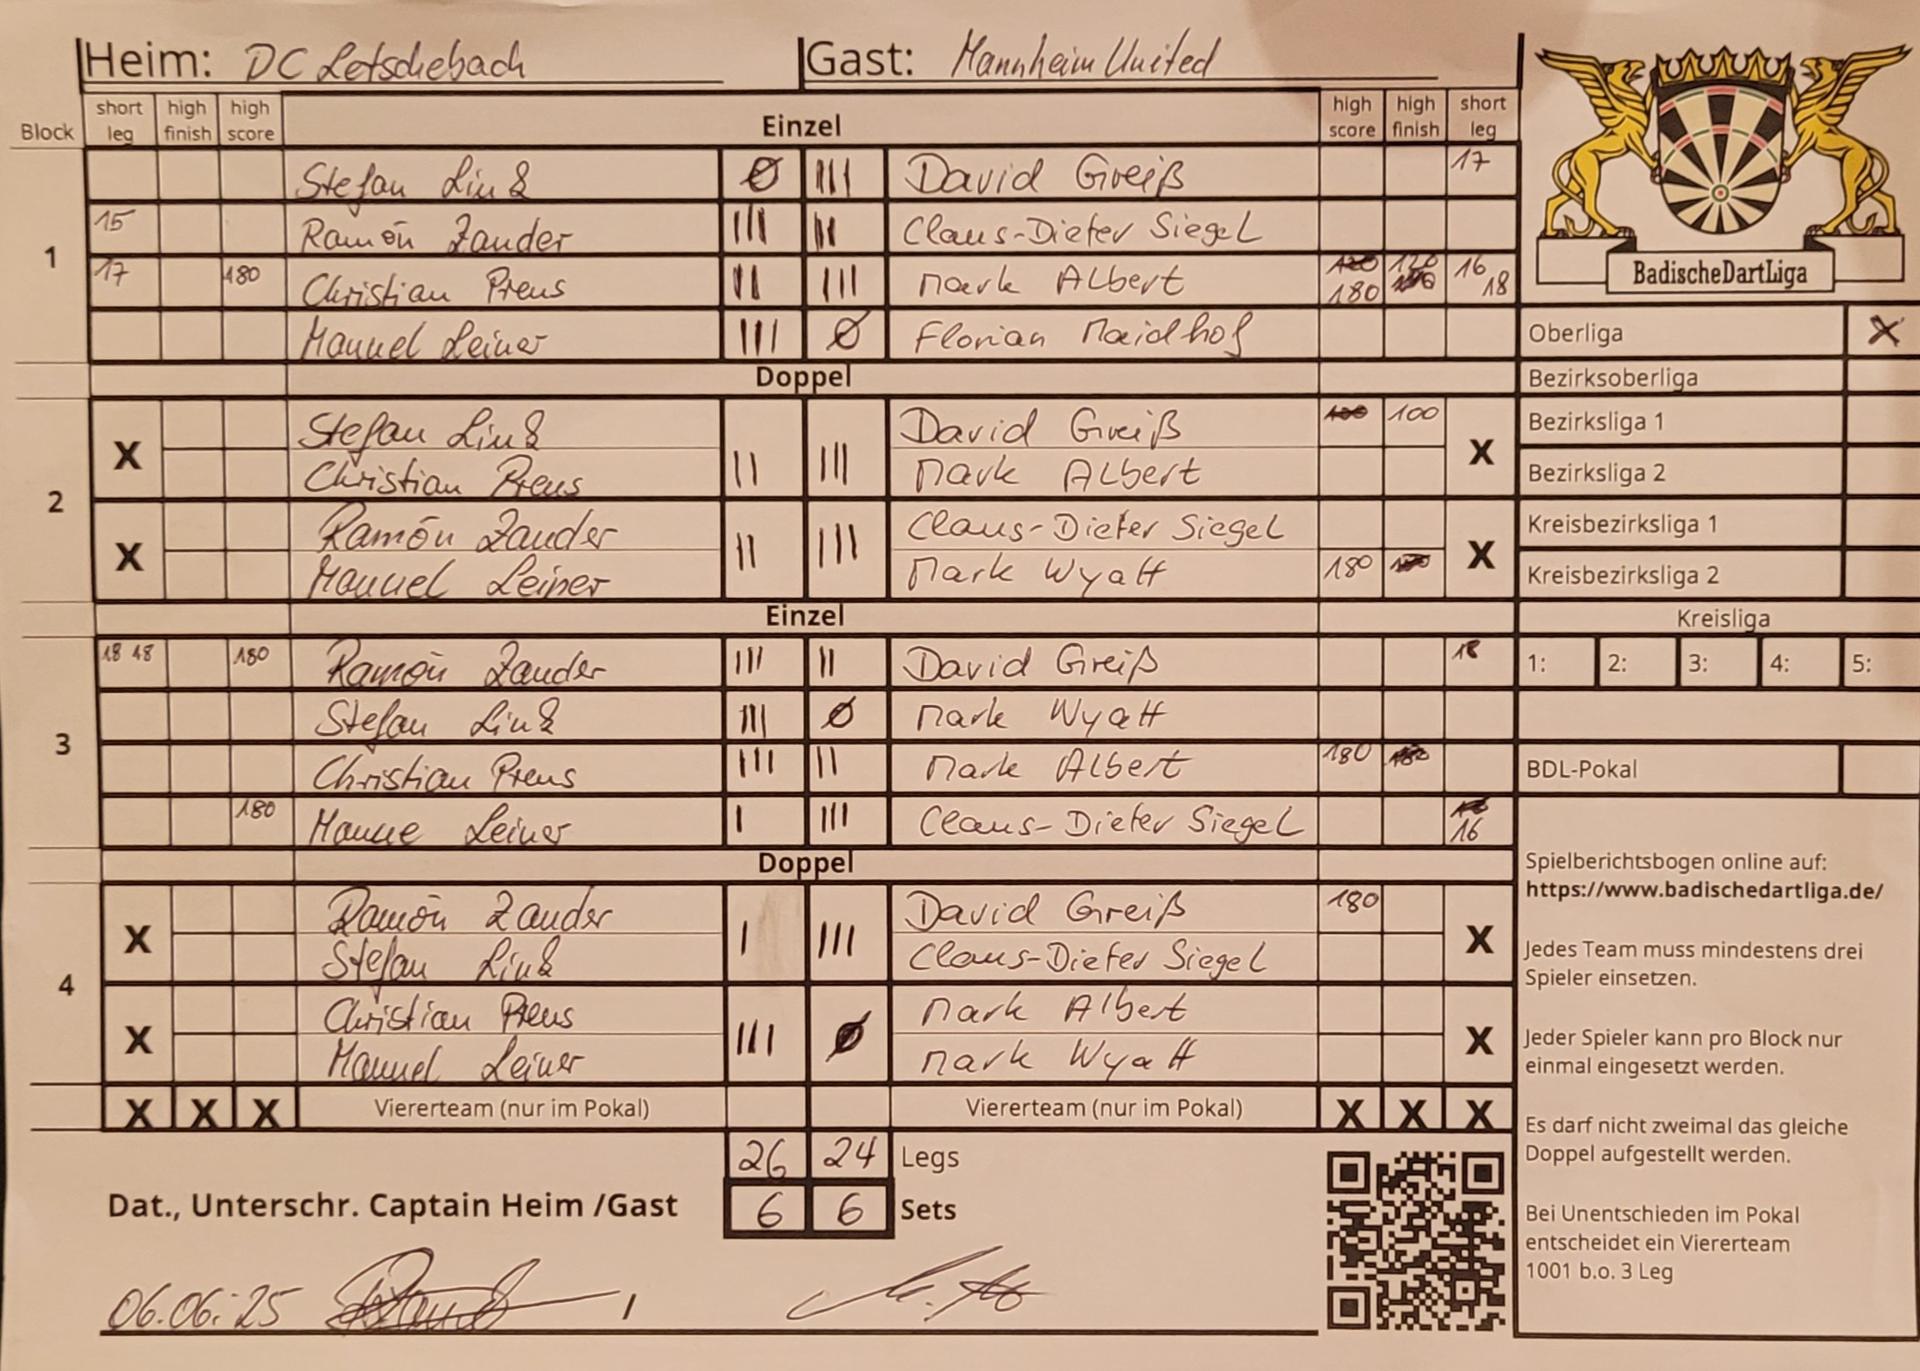 Heim: DC Letschebach Gast: Mannheim United
Block short leg high finish high score Einzel high score high finish short leg
1
Stefan Link Ø III David Greiß 17
15 Ramón Zander III II Claus-Dieter Siegel
17 180 Christian Preus II III Mark Albert 180 120 16 18
Manuel Leiner III Ø Florian Maidhof
Doppel
2
X Stefan Link II III David Greiß 100 X
Christian Preus Mark Albert
X Ramón Zander II III Claus-Dieter Siegel X
Manuel Leiner Mark Wyatt 180
Einzel
3
18 18 180 Ramón Zander III II David Greiß 18
Stefan Link III Ø Mark Wyatt
Christian Preus III II Mark Albert 180
180 Manue Leiner I III Claus-Dieter Siegel 16
Doppel
4
X Ramón Zander I III David Greiß 180 X
Stefan Link Claus-Dieter Siegel
X Christian Preus III Ø Mark Albert X
Manuel Leiner Mark Wyatt
X X X Viererteam (nur im Pokal) Viererteam (nur im Pokal) X X X
26 24 Legs
Dat., Unterschr. Captain Heim /Gast 6 6 Sets
06.06.25
BadischeDartLiga
Oberliga X
Bezirksoberliga
Bezirksliga 1
Bezirksliga 2
Kreisbezirksliga 1
Kreisbezirksliga 2
Kreisliga
1: 2: 3: 4: 5:
BDL-Pokal
Spielberichtsbogen online auf:
https://www.badischedartliga.de/
Jedes Team muss mindestens drei
Spieler einsetzen.
Jeder Spieler kann pro Block nur
einmal eingesetzt werden.
Es darf nicht zweimal das gleiche
Doppel aufgestellt werden.
Bei Unentschieden im Pokal
entscheidet ein Viererteam
1001 b.o. 3 Leg